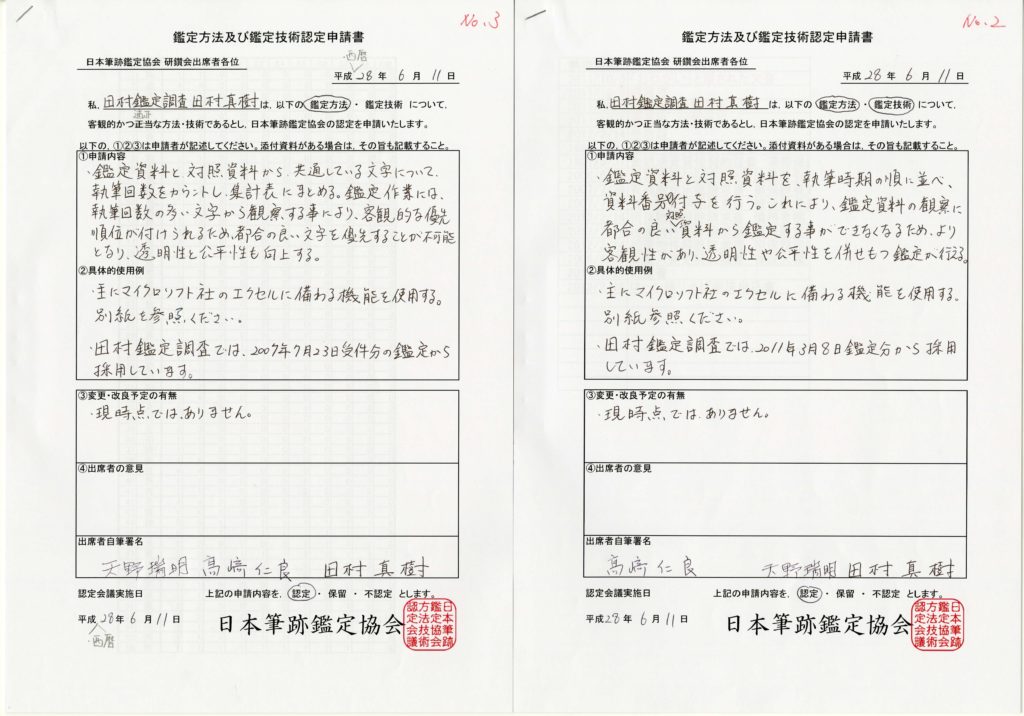 No.3
鑑定方法及び鑑定技術認定申請書
日本筆跡鑑定協会 研鑽会出席者各位
西暦
平成 28 年 6 月 11 日
私、田村鑑定調査 田村真樹 は、以下の 鑑定方法 ・ 鑑定技術 について、
適正
客観的かつ正当な方法・技術であるとし、日本筆跡鑑定協会の認定を申請いたします。
以下の、①②③は申請者が記述してください。添付資料がある場合は、その旨も記載すること。
①申請内容
・鑑定資料と対照資料から、共通している文字について、
執筆回数をカウントし、集計表にまとめる。鑑定作業には、
執筆回数の多い文字から観察する事により、客観的な優先
順位が付けられるため、都合の良い文字を優先することが不可能
となり、透明性と公平性も向上する。
②具体的使用例
・主にマイクロソフト社のエクセルに備わる機能を使用する。
別紙を参照ください。
・田村鑑定調査では、2007年7月23日受件分の鑑定から
採用しています。
③変更・改良予定の有無
・現時点では、ありません。
④出席者の意見
出席者自筆署名
天野瑞明 髙﨑仁良 田村真樹
認定会議実施日
上記の申請内容を、 認定 ・ 保留 ・ 不認定 とします。
平成 28 年 6 月 11 日
西暦
日本筆跡鑑定協会
日本筆跡
鑑定協会
方法技術
認定会議
No.2
鑑定方法及び鑑定技術認定申請書
日本筆跡鑑定協会 研鑽会出席者各位
平成 28 年 6 月 11 日
私、田村鑑定調査 田村真樹 は、以下の 鑑定方法 ・ 鑑定技術 について、
客観的かつ正当な方法・技術であるとし、日本筆跡鑑定協会の認定を申請いたします。
以下の、①②③は申請者が記述してください。添付資料がある場合は、その旨も記載すること。
①申請内容
・鑑定資料と対照資料を、執筆時期の順に並べ、
資料番号の付与を行う。これにより、鑑定資料の観察に
対照
都合の良い資料から鑑定する事ができなくなるため、より
客観性があり、透明性や公平性を併せもつ鑑定が行える。
②具体的使用例
・主にマイクロソフト社のエクセルに備わる機能を使用する。
別紙参照ください。
・田村鑑定調査では、2011年3月8日鑑定分から採用
しています。
③変更・改良予定の有無
・現時点では、ありません。
④出席者の意見
出席者自筆署名
髙﨑仁良 天野瑞明 田村真樹
認定会議実施日
上記の申請内容を、 認定 ・ 保留 ・ 不認定 とします。
平成 28 年 6 月 11 日
日本筆跡鑑定協会
日本筆跡
鑑定協会
方法技術
認定会議